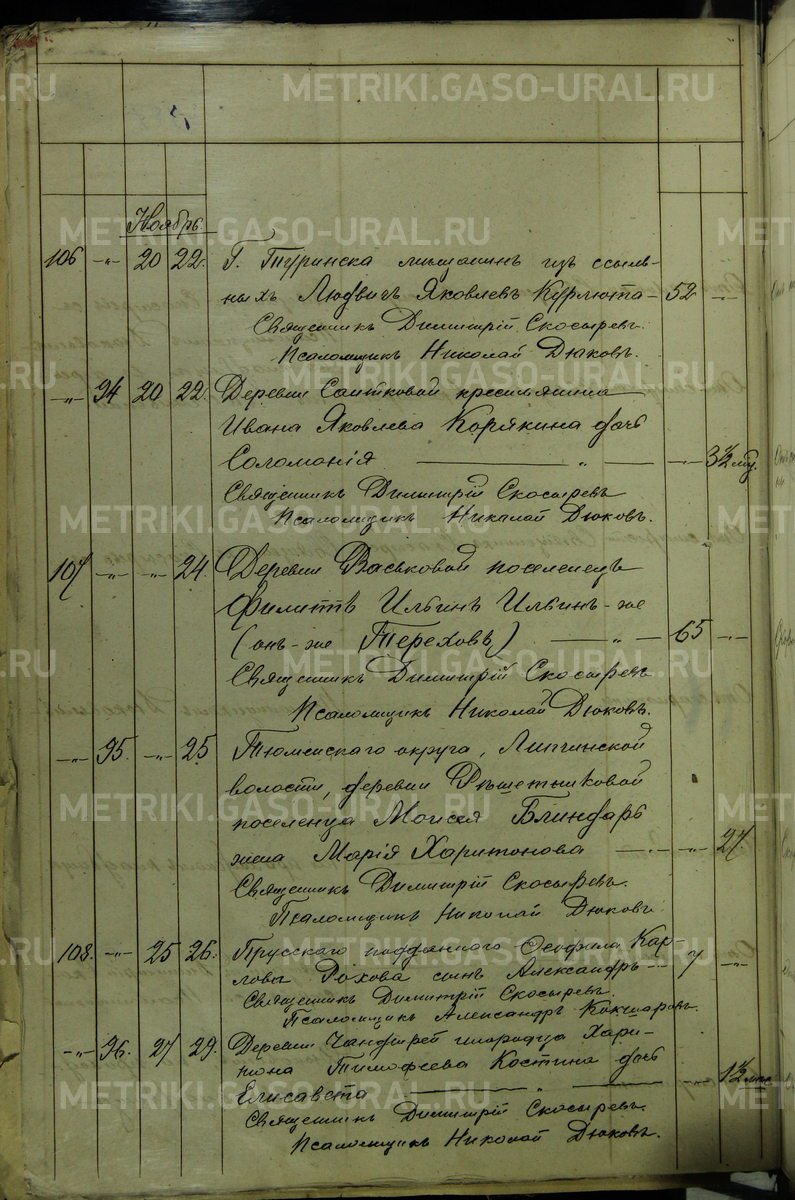 METRIKI.GASO-URAL.RU
Ноябрь.
106 -„- 20 22. Г. Туринска мѣщанинъ изъ ссыль-
ныхъ Людвигъ Яковлевъ Курлюта - 52 -„-
Священникъ Димитрій Скосыревъ.
Псаломщикъ Николай Дюковъ.
-„- 94 20 22. Деревни Саитковой крестьянина
Ивана Яковлева Корякина дочь
Соломонія -„- -„- 3½ мѣ.
Священникъ Димитрій Скосыревъ
Псаломщикъ Николай Дюковъ.
107 -„- -„- 24. Деревни Васьковой поселенецъ
Филиппъ Ильинъ Ильинъ-же
(онъ-же Тереховъ) -„- 65 -„-
Священникъ Димитрій Скосыревъ
Псаломщикъ Николай Дюковъ.
-„- 95. -„- 25 Тюменскаго округа, Липчинской
волости, деревни Рѣшетниковой
поселенца Моисея Блиндарь
жена Марія Харитонова -„- 27.
Священникъ Димитрій Скосыревъ.
Псаломщикъ Николай Дюковъ.
108. -„- 25 26. Прусскаго подданнаго Ѳеофила Кар-
лова Рохова сынъ Александръ - 7 -„-
Священникъ Димитрій Скосыревъ.
Псаломщикъ Александръ Кокшаровъ.
-„- 96. 27 29. Деревни инородца Хари-
тона Тимофеева Костина дочь
Елисавета -„- -„- 1½ мѣс
Священникъ Димитрій Скосыревъ.
Псаломщикъ Николай Дюковъ.